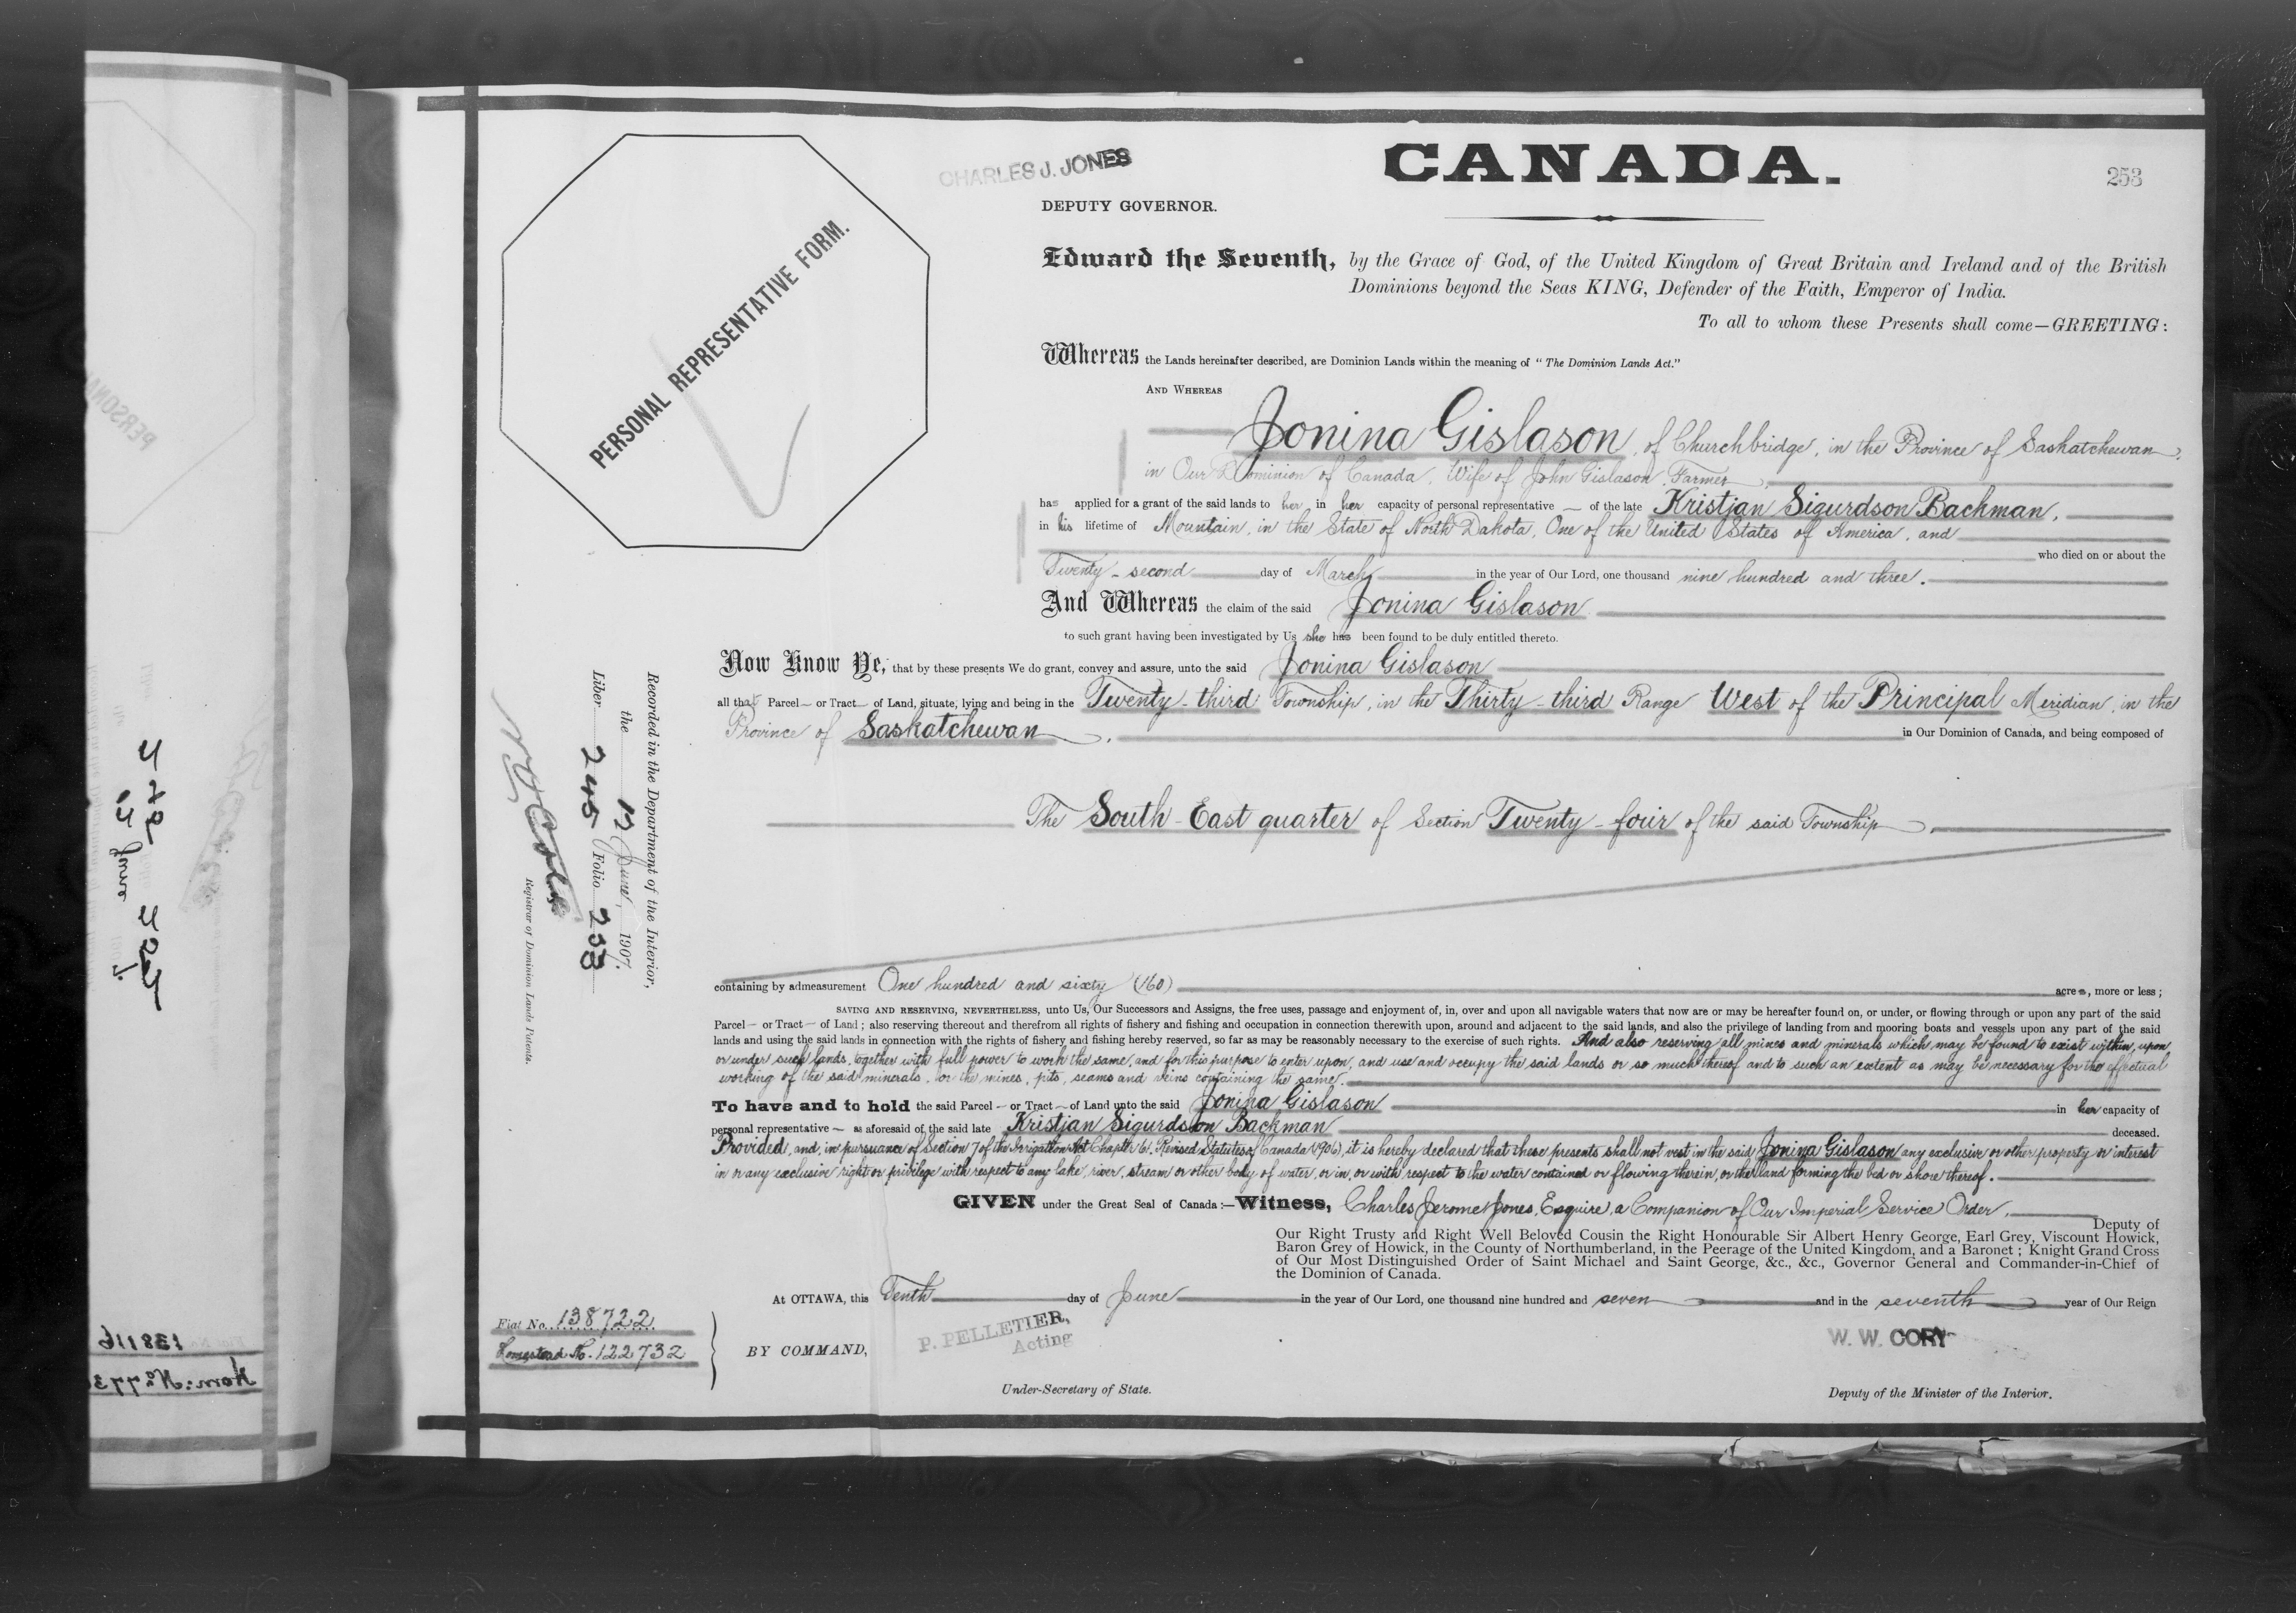 CANADA.
253
CHARLES J. JONES
DEPUTY GOVERNOR.
PERSONAL REPRESENTATIVE FORM.
Edward the Seventh, by the Grace of God, of the United Kingdom of Great Britain and Ireland and of the British
Dominions beyond the Seas KING, Defender of the Faith, Emperor of India.
To all to whom these Presents shall come—GREETING:
Whereas the Lands hereinafter described, are Dominion Lands within the meaning of "The Dominion Lands Act."
AND WHEREAS
Jonina Gislason, of Churchbridge, in the Province of Saskatchewan,
in Our Dominion of Canada, Wife of John Gislason, Farmer,
has applied for a grant of the said lands to her in her capacity of personal representative — of the late Kristjan Sigurdson Backman,
in his lifetime of Mountain, in the State of North Dakota, One of the United States of America, and
who died on or about the
Twenty-second day of March in the year of Our Lord, one thousand nine hundred and three.
And Whereas the claim of the said Jonina Gislason
to such grant having been investigated by Us she has been found to be duly entitled thereto.
Now Know Ye, that by these presents We do grant, convey and assure, unto the said Jonina Gislason
all that Parcel — or Tract — of Land, situate, lying and being in the Twenty-third Township, in the Thirty-third Range West of the Principal Meridian, in the
Province of Saskatchewan, in Our Dominion of Canada, and being composed of
The South-East quarter of Section Twenty-four of the said Township,
containing by admeasurement One hundred and sixty (160) acres, more or less;
SAVING AND RESERVING, NEVERTHELESS, unto Us, Our Successors and Assigns, the free uses, passage and enjoyment of, in, over and upon all navigable waters that now are or may be hereafter found on, or under, or flowing through or upon any part of the said
Parcel — or Tract — of Land; also reserving thereout and therefrom all rights of fishery and fishing and occupation in connection therewith upon, around and adjacent to the said lands, and also the privilege of landing from and mooring boats and vessels upon any part of the said
lands and using the said lands in connection with the rights of fishery and fishing hereby reserved, so far as may be reasonably necessary to the exercise of such rights. And also reserving all mines and minerals which may be found to exist within, upon
or under such lands, together with full power to work the same, and for this purpose to enter upon, and use and occupy the said lands or so much thereof and to such an extent as may be necessary for the effectual
working of the said minerals, or the mines, pits, seams and veins containing the same.
To have and to hold the said Parcel — or Tract — of Land unto the said Jonina Gislason in her capacity of
personal representative — as aforesaid of the said late Kristjan Sigurdson Backman deceased.
Provided, and, in pursuance of Section 7 of the Irrigation Act Chapter 61, Revised Statutes of Canada (1906), it is hereby declared that these presents shall not vest in the said Jonina Gislason any exclusive or other property or interest
in or any exclusive right or privilege with respect to any lake, river, stream or other body of water, or in, or with respect to the water contained or flowing therein, or the land forming the bed or shore thereof.
GIVEN under the Great Seal of Canada:—Witness, Charles Jerome Jones, Esquire, a Companion of Our Imperial Service Order,
Deputy of
Our Right Trusty and Right Well Beloved Cousin the Right Honourable Sir Albert Henry George, Earl Grey, Viscount Howick,
Baron Grey of Howick, in the County of Northumberland, in the Peerage of the United Kingdom, and a Baronet; Knight Grand Cross
of Our Most Distinguished Order of Saint Michael and Saint George, &c., &c., Governor General and Commander-in-Chief of
the Dominion of Canada.
At OTTAWA, this Tenth day of June in the year of Our Lord, one thousand nine hundred and seven and in the seventh year of Our Reign
BY COMMAND,
P. PELLETIER,
Acting
Under-Secretary of State.
W. W. CORY
Deputy of the Minister of the Interior.
Fiat No. 138722
Homestead No. 122732
Recorded in the Department of the Interior,
the 12 June, 1907.
Liber 245 Folio 253
Registrar of Dominion Lands Patents.
138116